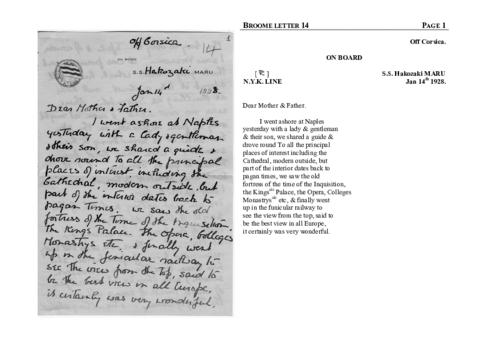 Off Corsica.
14
1
ON BOARD
S.S. Hakozaki MARU
Jan 14th 1928.
Dear Mother & Father.
I went ashore at Naples
yesterday with a lady & gentleman
& their son, we shared a guide &
drove round to all the principal
places of interest, including the
Cathedral, modern outside, but
part of the interior dates back to
pagan times, we saw the old
fortress of the time of the Inquisition,
the King's Palace the Opera, Colleges
Monastrys etc. & finally went
up in the funicular railway to
see the view from the top, said to
be the best view in all Europe,
it certainly was very wonderful.
BROOME LETTER 14 PAGE 1
Off Corsica.
ON BOARD
N.Y.K. LINE
S.S. Hakozaki MARU
Jan 14th 1928.
Dear Mother & Father.
I went ashore at Naples
yesterday with a lady & gentleman
& their son, we shared a guide &
drove round To all the principal
places of interest including the
Cathedral, modern outside, but
part of the interior dates back to
pagan times, we saw the old
fortress of the time of the Inquisition,
the Kings Palace, the Opera, Colleges
Monastrys etc, & finally went
up in the funicular railway to
see the view from the top, said to
be the best view in all Europe,
it certainly was very wonderful.